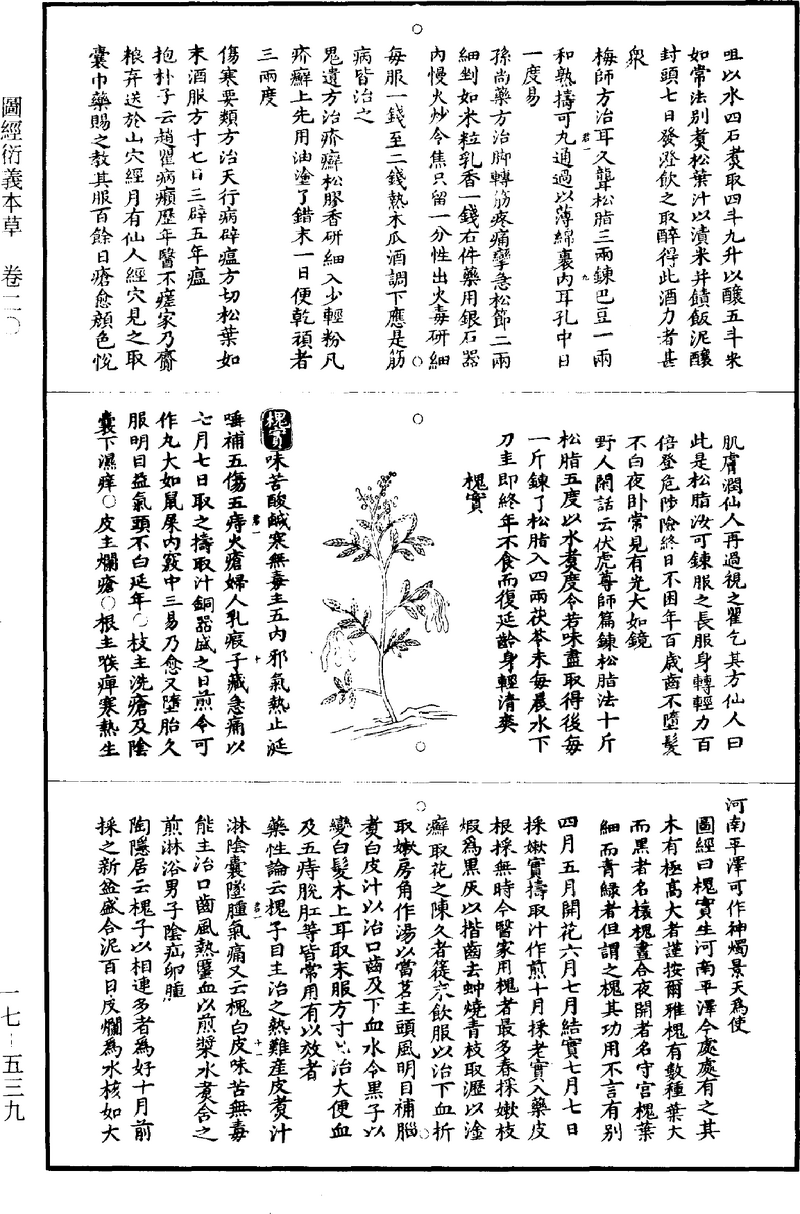 圖經衍義本草　卷二〇
咀以水四石煑取四斗九升以釀五斗米
如常法別煑松葉汁以漬米并饙飯泥釀
封頭七日發澄飲之取醉得此酒力者甚
衆
梅師方治耳久聾松脂三兩鍊巴豆一兩
和熟擣可丸通過以薄綿裹內耳孔中日
一度易
孫尚藥方治脚轉筋疼痛攣急松節二兩
細剉如米粒乳香一錢右件藥用銀石器
內慢火炒令焦只留一分性出火毒研細
每服一錢至二錢熱木瓜酒調下應是筋
病皆治之
鬼遺方治疥癬松膠香研細入少輕粉凡
疥癬上先用油塗了錯末一日便乾頑者
三兩度
傷寒要類方治天行病辟瘟方切松葉如
末酒服方寸匕日三辟五年瘟
抱朴子云趙瞿病癩歷年醫不瘥家乃齎
粮弃送於山穴經月有仙人經穴見之取
囊巾藥賜之教其服百餘日瘡愈顏色悅
肌膚潤仙人再過視之瞿乞其方仙人曰
此是松脂汝可鍊服之長服身轉輕力百
倍登危陟險終日不困年百歲齒不墮髮
不白夜卧常見有光大如鏡
野人閑話云伏虎尊師篇鍊松脂法十斤
松脂五度以水煑度令苦味盡取得後每
一斤鍊了松脂入四兩茯苓末每晨水下
刀圭即終年不食而復延齡身輕清爽
槐實
槐實味苦酸鹹寒無毒主五內邪氣熱止涎
唾補五傷五痔火瘡婦人乳瘕子藏急痛以
七月七日取之擣取汁銅器盛之日煎令可
作丸大如鼠屎內竅中三易乃愈又墮胎久
服明目益氣頭不白延年○枝主洗瘡及陰
囊下濕痒○皮主爛瘡○根主喉痺寒熱生
河南平澤可作神燭景天爲使
圖經曰槐實生河南平澤今處處有之其
木有極高大者謹按爾雅槐有數種葉大
而黑者名櫰槐晝合夜開者名守宮槐葉
細而青緑者但謂之槐其功用不言有別
四月五月開花六月七月結實七月七日
採嫩實擣取汁作煎十月採老實入藥皮
根採無時今醫家用槐者最多春採嫩枝
煆爲黑灰以揩齒去蚛燒青枝取瀝以塗
癬取花之陳久者篵末飲服以治下血折
取嫩房角作湯以當茗主頭風明目補腦
煑白皮汁以治口齒及下血水令黒子以
變白髮木上耳取末服方寸匕治大便血
及五痔脫肛等皆常用有以效者
藥性論云槐子目主治之熱難產皮煑汁
淋陰囊墜腫氣痛又云槐白皮味苦無毒
能主治口齒風熱䘌血以煎漿水煑含之
煎淋浴男子陰疝卵腫
陶隱居云槐子以相連多者爲好十月前
採之新盆盛合泥百日皮爛爲水核如大
一七－五三九